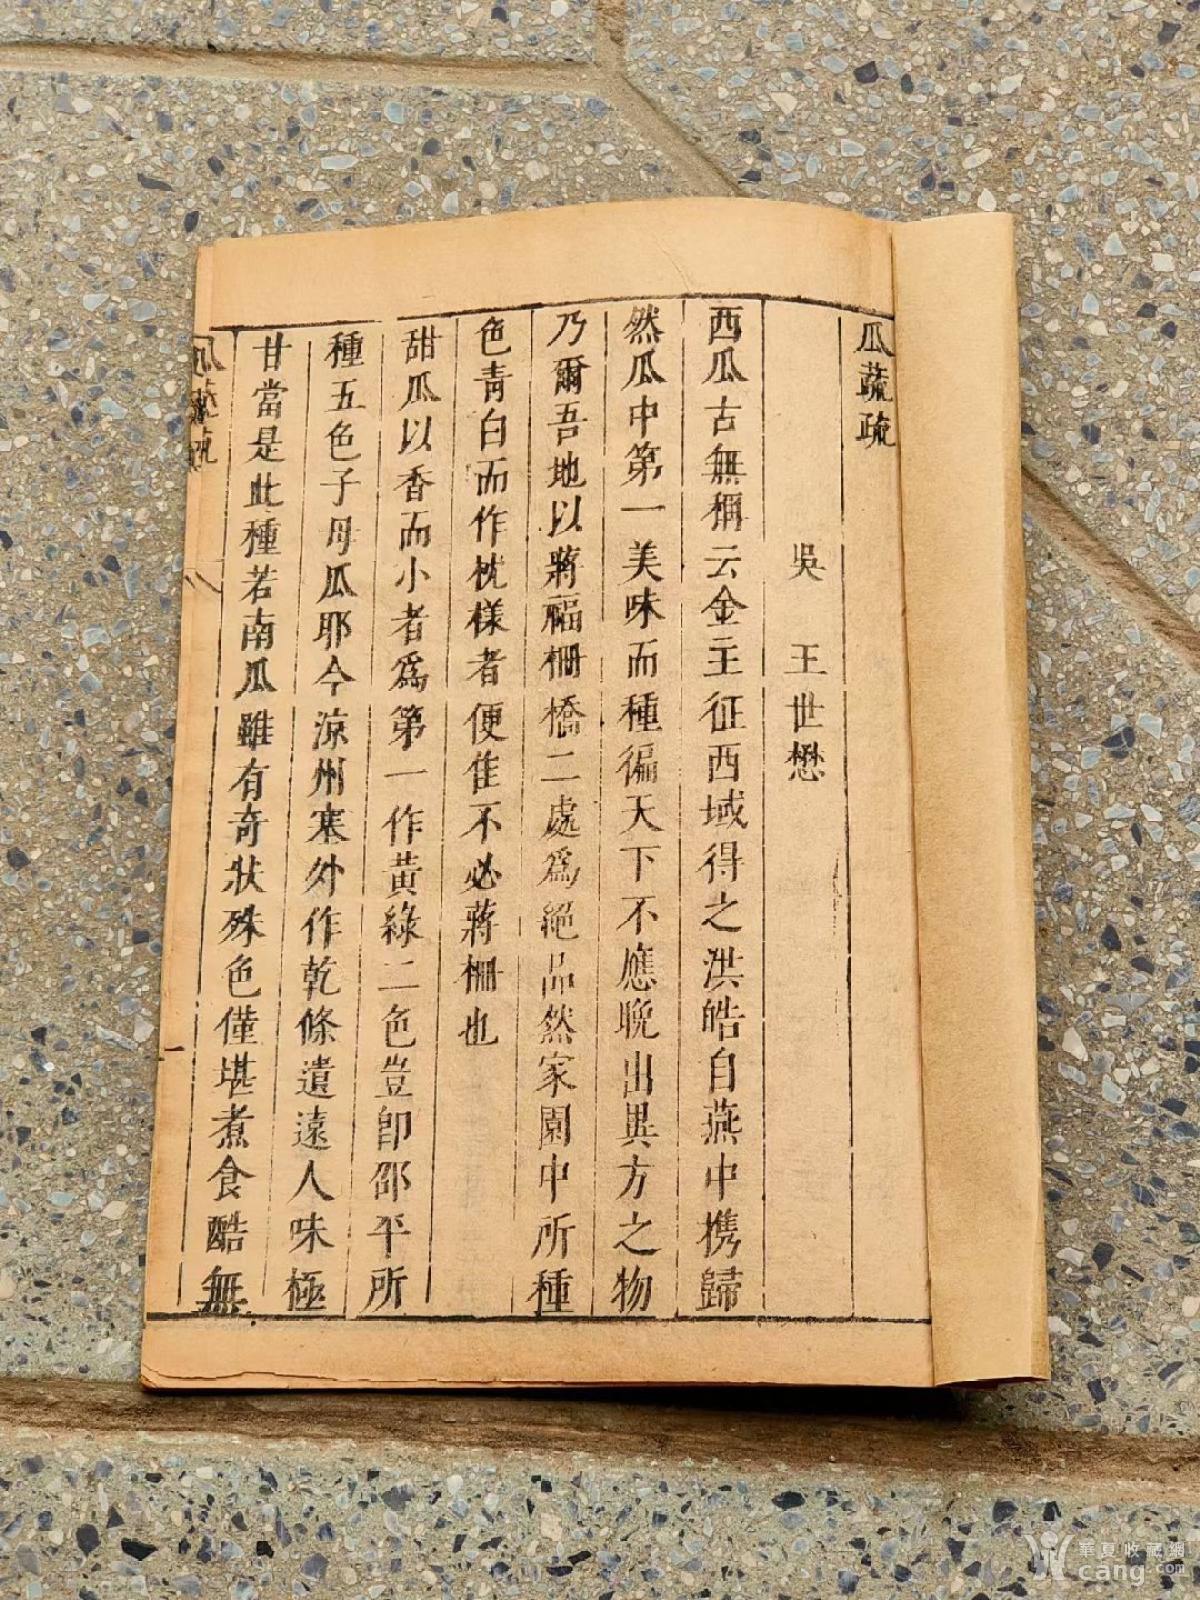 瓜蔬疏
吳 王世懋
西瓜古無稱云金主征西域得之洪皓自燕中携歸
然瓜中第一美味而種徧天下不應晚出異方之物
乃爾吾地以蔣福柵橋二處爲絕品然家園中所種
色青白而作枕樣者便佳不必蔣柵也
甜瓜以香而小者爲第一作黃綠二色豈卽邵平所
種五色子母瓜耶今涼州塞外作乾條遺遠人味極
甘當是此種若南瓜雖有奇狀殊色僅堪煮食酷無
瓜蔬疏
一
華夏收藏網
cang.com